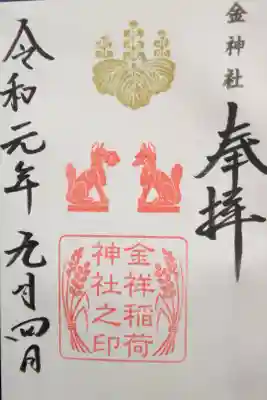 金神社
奉拝
金祥稲荷
神社之印
令和元年九月四日